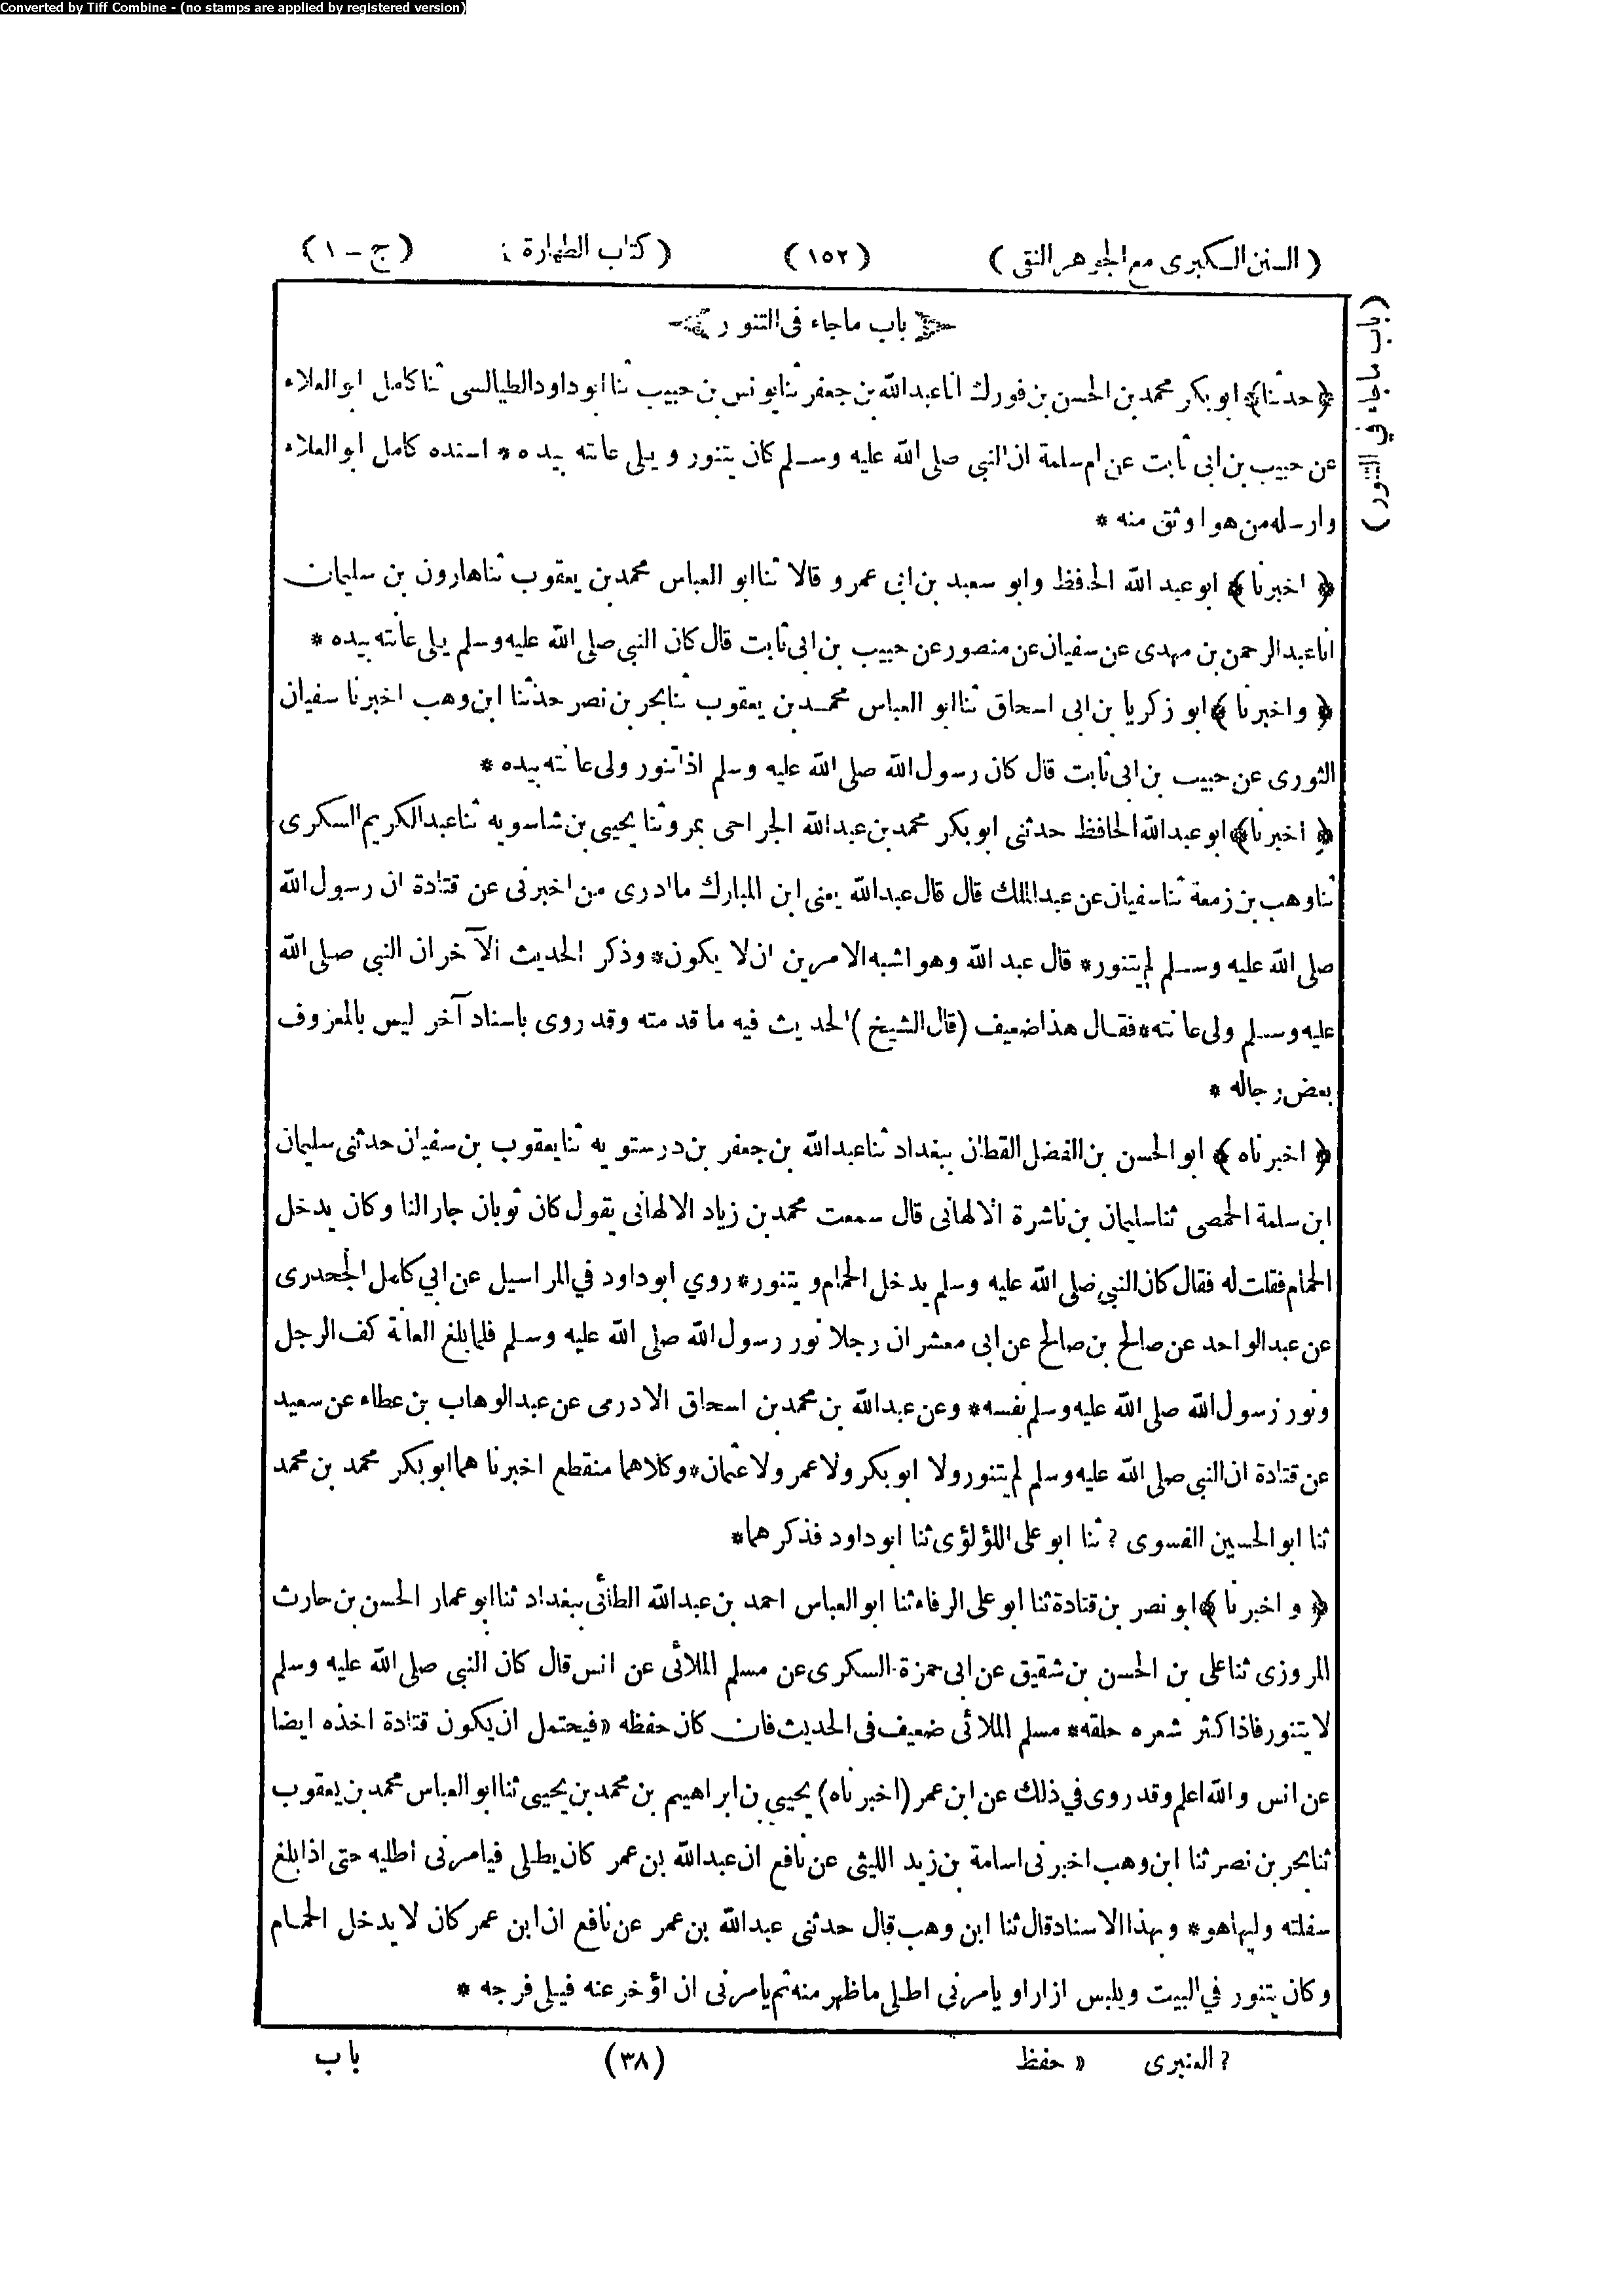 Converted by Tiff Combine - (no stamps are applied by registered version)
( السنن الكبرى مع الجوهر النقى ) (١٥٢) ( كتاب الطهارة ) (ج - ١)
(باب ماجاء في التنور)
﴿ باب ماجاء فى التنور ﴾
﴿ حدثنا ﴾ ابو بكر محمد بن الحسن بن فورك انا عبد الله بن جعفر ثنا يونس بن حبيب ثنا ابو داود الطيالسى ثنا كامل ابو العلاء
عن حبيب بن ابى ثابت عن ام سلمة ان النبي صلى الله عليه وسلم كان يتنور ويلى عانته بيده * اسنده كامل ابو العلاء
وارسله من هو اوثق منه *
﴿ اخبرنا ﴾ ابو عبد الله الحافظ وابو سعيد بن ابى عمرو قالا ثنا ابو العباس محمد بن يعقوب ثنا هارون بن سليمان
انا عبد الرحمن بن مهدى عن سفيان عن منصور عن حبيب بن ابى ثابت قال كان النبي صلى الله عليه وسلم يلى عانته بيده *
﴿ واخبرنا ﴾ ابو زكريا بن ابى اسحاق ثنا ابو العباس محمد بن يعقوب ثنا بحر بن نصر حدثنا ابن وهب اخبرنا سفيان
الثورى عن حبيب بن ابى ثابت قال كان رسول الله صلى الله عليه وسلم اذا تنور ولى عانته بيده *
﴿ اخبرنا ﴾ ابو عبد الله الحافظ حدثنى ابو بكر محمد بن عبد الله الجراحى بمرو ثنا يحيى بن شاسويه ثنا عبد الكريم السكرى
ثنا وهب بن زمعة ثنا سفيان عن عبد الملك قال قال عبد الله يعنى ابن المبارك ما ادرى من اخبرنى عن قتادة ان رسول الله
صلى الله عليه وسلم لم يتنور * قال عبد الله وهو اشبه الامرين ان لا يكون * وذكر الحديث الآخر ان النبي صلى الله
عليه وسلم ولى عانته * فقال هذا ضعيف (قال الشيخ) الحديث فيه ما قدمته وقد روى باسناد آخر ليس بالمعروف
بعض رجاله *
﴿ اخبرناه ﴾ ابو الحسن بن الفضل القطان ببغداد ثنا عبد الله بن جعفر بن درستويه ثنا يعقوب بن سفيان حدثنى سليمان
ابن سلمة الحمصى ثنا سليمان بن ناشرة الالهانى قال سمعت محمد بن زياد الالهانى يقول كان ثوبان جارالنا وكان يدخل
الحمام فقلت له فقال كان النبي صلى الله عليه وسلم يدخل الحمام ويتنور * روي ابو داود في المراسيل عن ابي كامل الجحدرى
عن عبد الواحد عن صالح بن صالح عن ابى معشر ان رجلا نور رسول الله صلى الله عليه وسلم فلما بلغ العانة كف الرجل
ونور رسول الله صلى الله عليه وسلم نفسه * وعن عبد الله بن محمد بن اسحاق الادرمى عن عبد الوهاب بن عطاء عن سعيد
عن قتادة ان النبي صلى الله عليه وسلم لم يتنور ولا ابو بكر ولا عمر ولا عثمان * وكلاهما منقطع اخبرنا هما ابو بكر محمد بن محمد
ثنا ابو الحسين الفسوى ? ثنا ابو على اللؤلؤى ثنا ابو داود فذكرهما *
﴿ و اخبرنا ﴾ ابو نصر بن قتادة ثنا ابو على الرفاء ثنا ابو العباس احمد بن عبد الله الطائى ببغداد ثنا ابو عمار الحسن بن حارث
المروزى ثنا على بن الحسن بن شقيق عن ابى حمزة السكرى عن مسلم الملائى عن انس قال كان النبي صلى الله عليه وسلم
لا يتنور فاذا كثر شعره حلقه * مسلم الملائى ضعيف فى الحديث فان كان حفظه » فيحتمل ان يكون قتادة اخذه ايضا
عن انس والله اعلم وقد روى في ذلك عن ابن عمر (اخبرناه) يحيى بن ابراهيم بن محمد بن يحيى ثنا ابو العباس محمد بن يعقوب
ثنا بحر بن نصر ثنا ابن وهب اخبرنى اسامة بن زيد الليثى عن نافع ان عبد الله بن عمر كان يطلى فيامرنى اطليه حتى اذا بلغ
سفلته وليها هو * وبهذا الاسناد قال ثنا ابن وهب قال حدثنى عبد الله بن عمر عن نافع ان ابن عمر كان لا يدخل الحمام
وكان يتنور في البيت ويلبس ازارا ويامرنى اطلى ما ظهر منه ثم يامرنى ان اؤخر عنه فيلى فرجه *
? العنبرى » حفظ (٣٨) باب